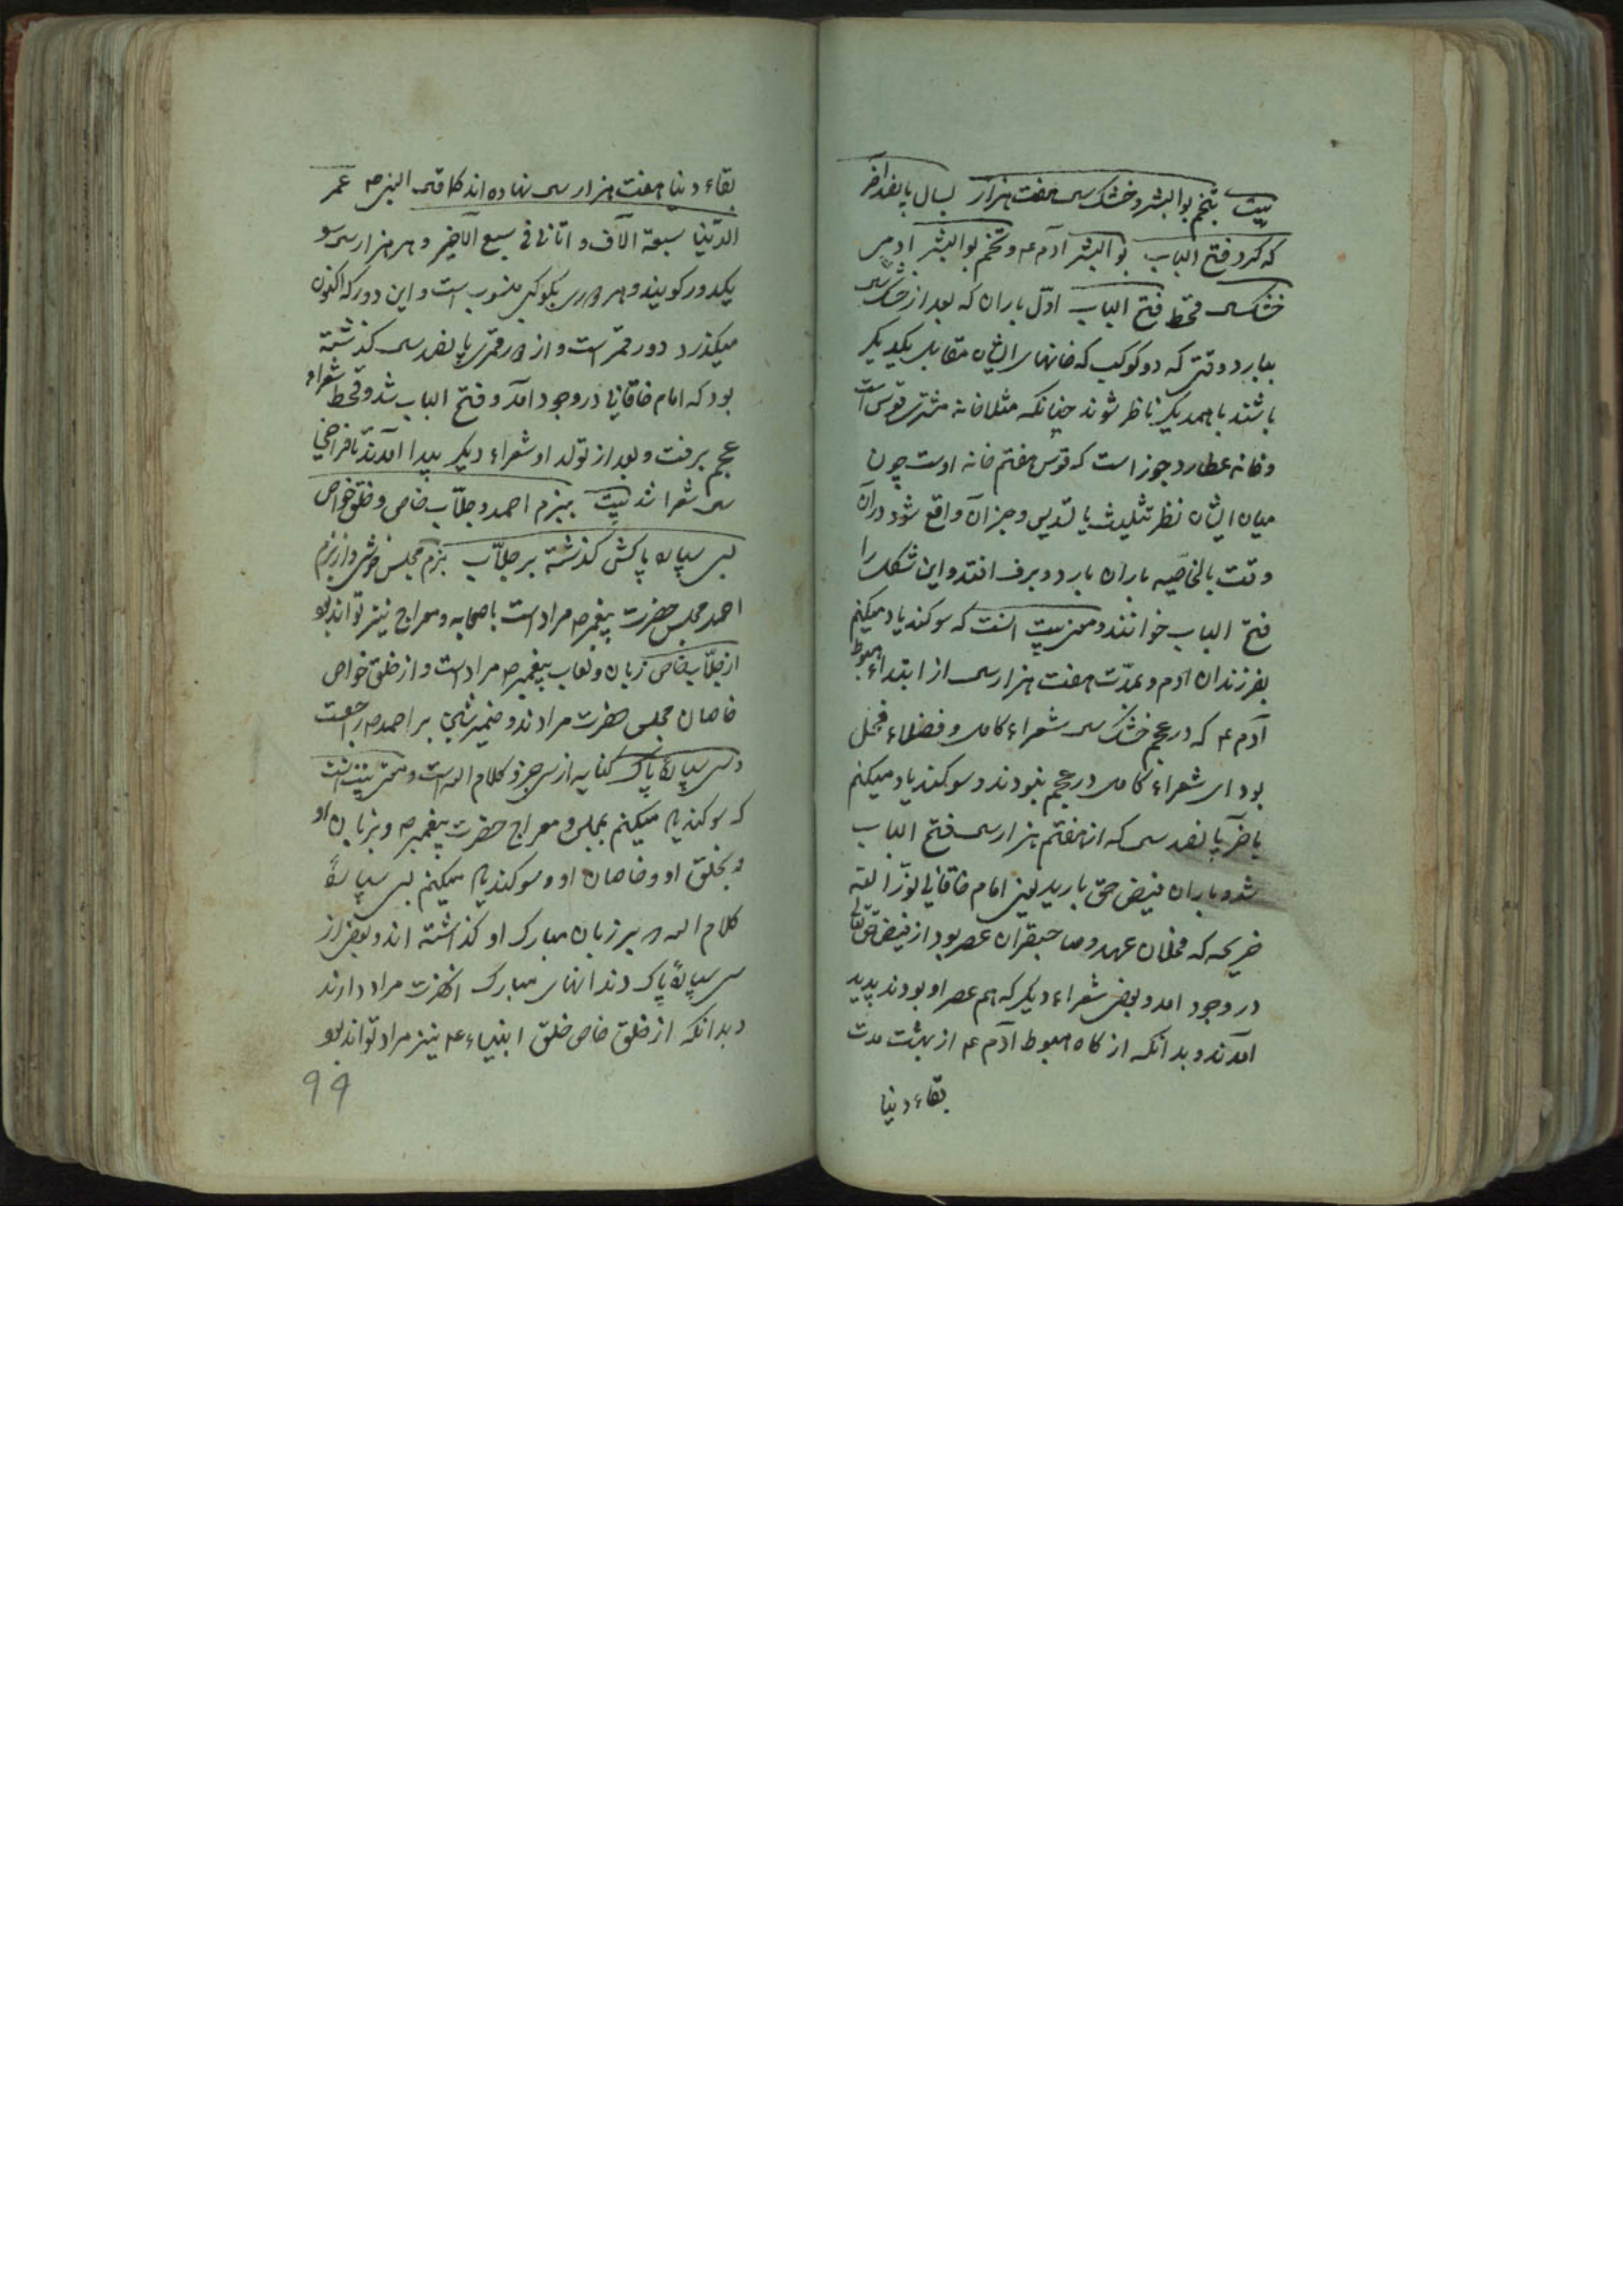 بیت بتخم بوالبشر و خشک سی هفت هزار بسال پانصد آخر
که کرد فتح الباب بو البشر آدم ۴ و تخم بوالبشر آدمی
خشک سی قحط فتح الباب اوّل باران که بعد از خشک سی
ببارد وقتی که دو کوکب که خانهای ایشان مقابل یکدیگر
باشند با همدیگر ناظر شوند چنانکه مثلا خانه مشتری قوس است
و خانه عطارد جوزا است که قوس هفتم خانه اوست چون
میان ایشان نظر تثلیث یا تسدیس و جز آن واقع شود در آن
وقت بالخاصّیه باران بارد و برف افتد و این شکل را
فتح الباب خوانند و معنی بیت آنست که سوکند یاد میکنم
بفرزندان آدم و بمدّت هفت هزار سی از ابتداء هبوط
آدم ۴ که در عجم خشک سی شعراء کامل و فضلاء فحل
بود ای شعراء کامل در عجم نبودند و سوکند یاد میکنم
باخر پانصد سی که از هفتم هزار سی فتح الباب
شد و باران فیض حقّ بارید یعنی امام خاقانی نوّر الله
ضریحه که سلطان عهد و صاحبقران عصر بود از فیض حق تعالی
در وجود امد و بعضی شعراء دیکر که هم عصر او بودند پدید
آمدند و بدانکه از کاه هبوط آدم ۴ از بهشت مدت
بقاء دنیا
بقاء دنیا هفت هزار سی نهاده اند کما قی النبی ص عمر
الدّنیا سبعة آلاف و انا فی سبع الآخیر و هر هزار سی
یکدور کویند و هر دوری بکوکبی منسوب است و این دور که اکنون
میکذرد دور قمر است و از دور قمری پانصد سی کذشته
بود که امام خاقانی در وجود آمد و فتح الباب شد و قحط شعراء
عجم برفت و بعد از تولد او شعراء دیکر پیدا آمدند تا فراخی
سی شعرا شد بیت ببزم احمد و جلّاب خاص و خلق خواص
بسی سپاره پاکش کذشته بر جلّاب بزم مجلس خوشی و از بزم
احمد مجلس حضرت پیغمبر ص مراد است با صحابه و معراج نیز تواند بود
از جلّاب خاص زبان و لعاب پیغمبر ص مراد است و از خلق خواص
خاصان مجلس حضرت مرادند و ضمیر شین بر احمد ص راجعست
و سی سپارهٔ پاک کنایه از سی جزو کلام الله است و معنی بیت آنست
که سوکند یاد میکنم بمجلس و معراج حضرت پیغمبر ص و بزبان او
و بخلق او و خاصان او و سوکند یاد میکنم بسی سپارهٔ
کلام الله که بر زبان مبارک او کذاشته اند و بعضی از
سی سپارهٔ پاک دندانهای مبارک آنحضرت مراد دارند
و بدانکه از خلق خاص خلق انبیاء ۴ نیز مراد تواند بود
۹۹